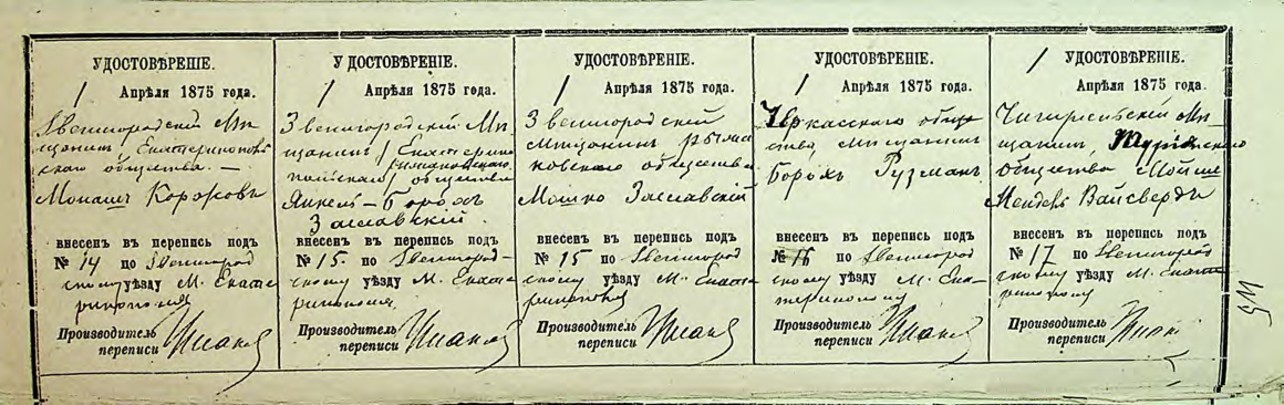 УДОСТОВѢРЕНІЕ.
1 Апрѣля 1875 года.
Звенигородскій Мѣ
щанинъ Екатеринопольс
каго общества. –
Монашъ Коржовъ
внесенъ въ перепись подъ
№ 14 по Звенигород
скому уѣзду М. Екате
ринополя
Производитель
переписи
УДОСТОВѢРЕНІЕ.
1 Апрѣля 1875 года.
Звенигородскій Мѣ
щанинъ Екатерино
польскаго общества
Янкель – Борохъ
Заславскій
внесенъ въ перепись подъ
№ 15. по Звенигород-
скому уѣзду М. Екате
ринополя
Производитель
переписи
УДОСТОВѢРЕНІЕ.
1 Апрѣля 1875 года.
Звенигородскій
Мѣщанинъ
ковскаго общества
Мошко Заславскій
внесенъ въ перепись подъ
№ 15 по Звенигород
скому уѣзду М. Екате
ринополя
Производитель
переписи
УДОСТОВѢРЕНІЕ.
1 Апрѣля 1875 года.
Черкасскаго обще
ства, мѣщанинъ
Борохъ Гузманъ
внесенъ въ перепись подъ
№ 16 по Звенигород
скому уѣзду М. Ека-
теринополу
Производитель
переписи
УДОСТОВѢРЕНІЕ.
1 Апрѣля 1875 года.
Чигиринскій Мѣ
щанинъ,
Общества Мойше
Мендель Вайсвердъ
внесенъ въ перепись подъ
№ 17 по Звенигород
скому уѣзду М. Екате
ринополу
Производитель
переписи